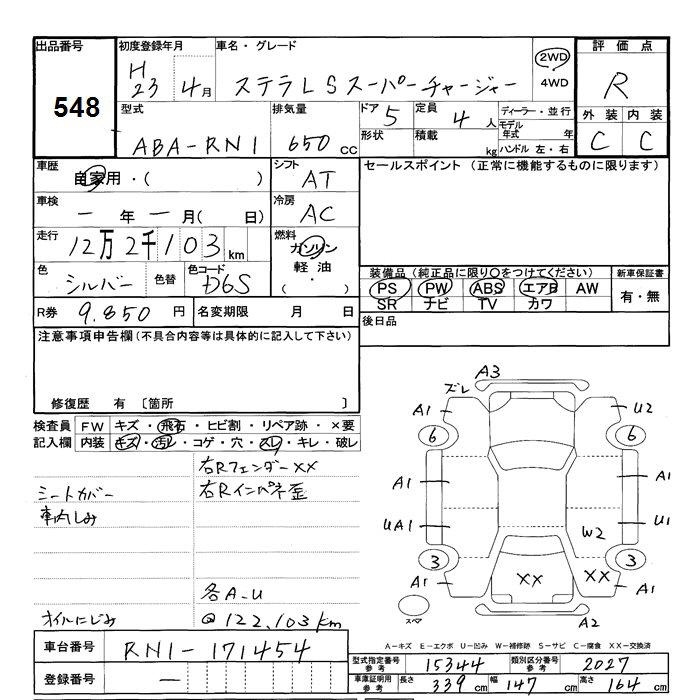 出品番号
548
初度登録年月
H
23 4月
車名・グレード
ステラLSスーパーチャージャー
2WD
4WD
評価点
R
外装 内装
C C
型式
ABA-RN1
排気量
650cc
ドア 5
定員 4人
形状
積載 kg
ディーラー・並行
モデル年式 年
ハンドル 左・右
車歴
自家用・( )
シフト
AT
セールスポイント (正常に機能するものに限ります)
車検
一年一月( 日)
冷房
AC
走行
12万2千103km
燃料
ガソリン
軽油
( ・ )
色
シルバー
色替
色コード
D6S
装備品 (純正品に限り○をつけてください)
PS PW ABS エアB AW
SR ナビ TV カワ
新車保証書
有・無
R券 9.850円
名変期限 月 日
後日品
注意事項申告欄(不具合内容等は具体的に記入して下さい)
修復歴 有 〔箇所 〕
検査員記入欄
FW キズ・飛石・ヒビ割・リペア跡・×要
内装 キズ・汚レ・コゲ・穴・スレ・キレ・破レ
右Rフェンダーxx
シートカバー
右Rインパネ歪
車内しみ
各A.U
オイルにじみ
@122,103km
ズレ A3
A1 U2
6 6
A1 A1
UA1 U1
W2
3 3
A1 XX XX A1
スペア
A2
A-キズ E-エクボ U-凹み W-補修跡 S-サビ C-腐食 XX-交換済
車台番号 RN1-171454
登録番号 一
型式指定番号 参考 15344
類別区分番号 参考 2027
車庫証明用 参考 長さ 339cm 幅 147cm 高さ 164cm